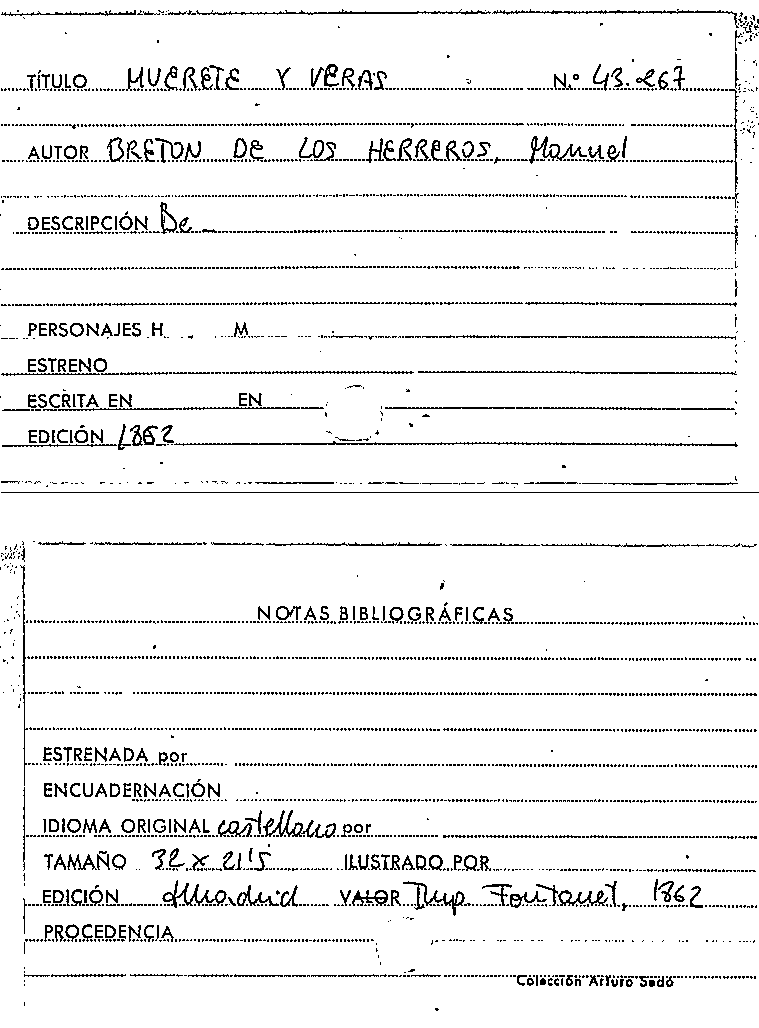 TÍTULO MUERETE Y VERAS N.º 43.267
AUTOR BRETON DE LOS HERREROS, Manuel
DESCRIPCIÓN De
PERSONAJES H. M
ESTRENO
ESCRITA EN EN
EDICIÓN 1862
NOTAS BIBLIOGRÁFICAS
ESTRENADA por
ENCUADERNACIÓN
IDIOMA ORIGINAL castellano por
TAMAÑO 32 x 21'5 ILUSTRADO POR
EDICIÓN Madrid VALOR Imp Fontanet, 1862
PROCEDENCIA
Colección Arturo Sedó